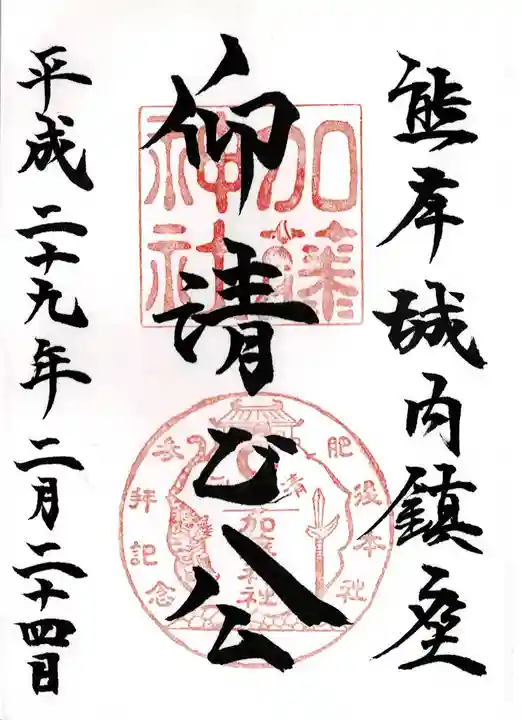 熊本城内鎮座
仰清正公
平成二十九年二月二十四日
加藤
神社
肥後本社
参拝記念
清
加藤神社